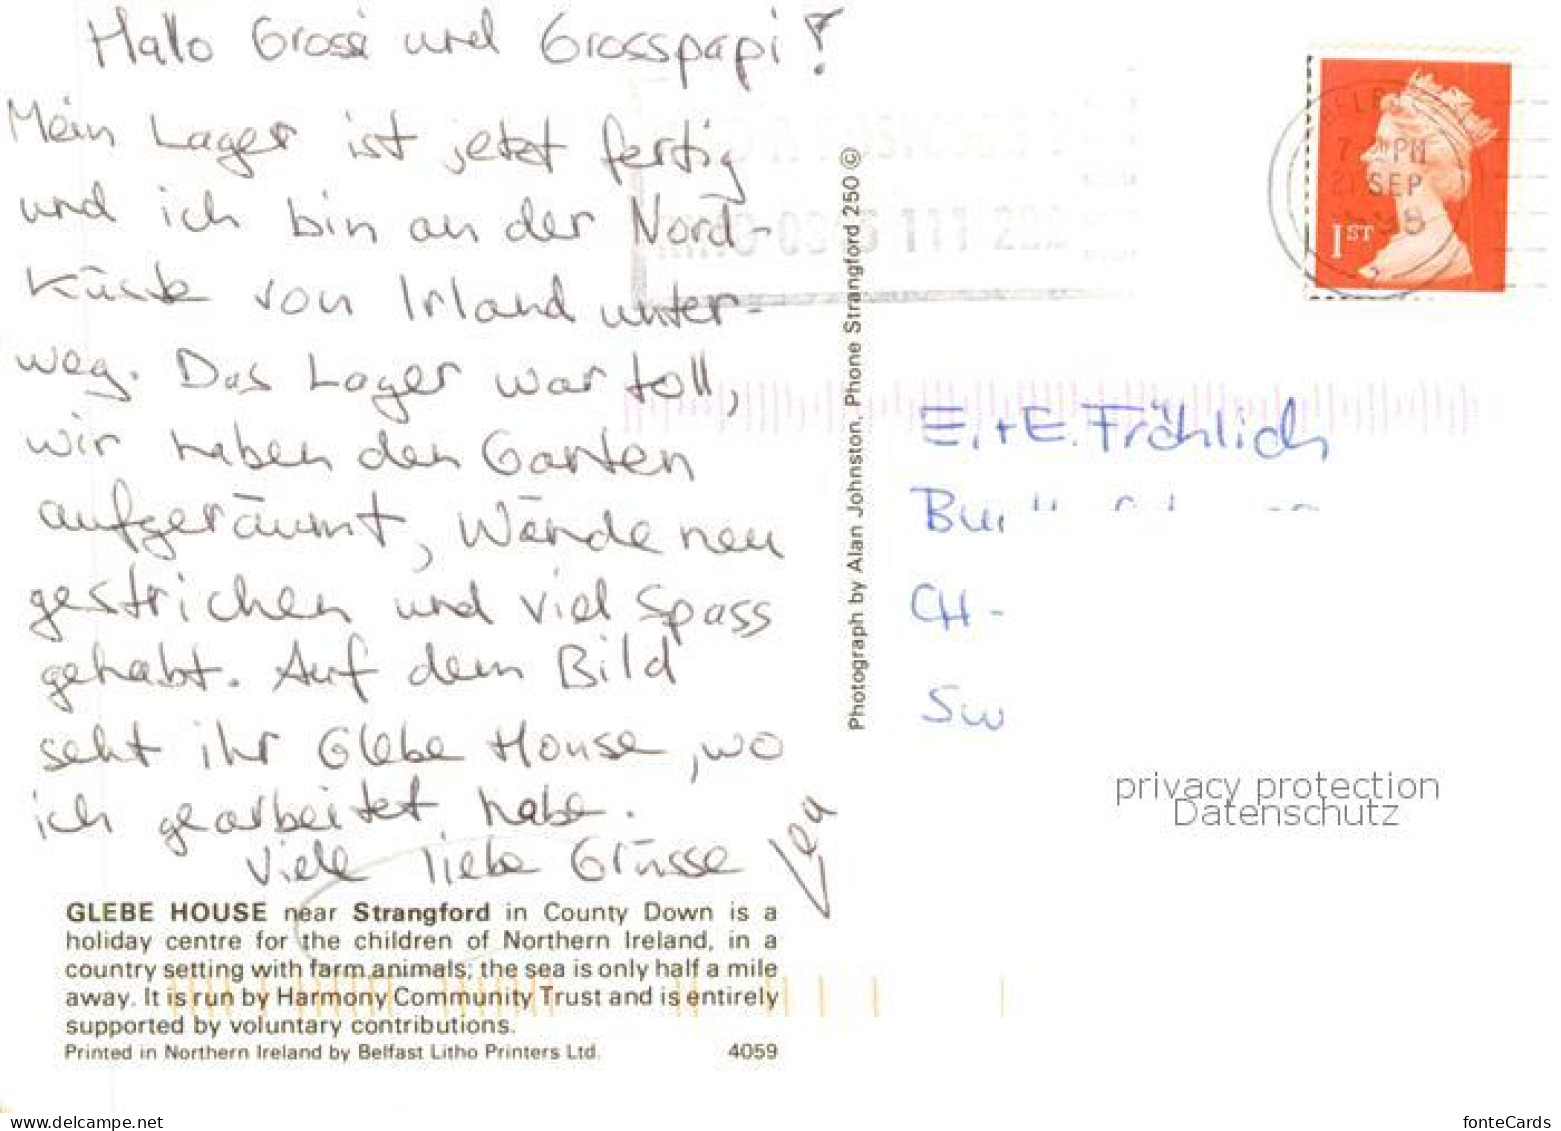 Hallo Grosi und Grosspapi!
Mein Lager ist jetzt fertig
und ich bin an der Nord-
Küste von Irland unter-
weg. Das Lager war toll,
wir haben den Garten
aufgeräumt, Wände neu
gestrichen und viel Spass
gehabt. Auf dem Bild
seht ihr Glebe House, wo
ich gearbeitet habe.
Viele liebe Grüsse
Lea
GLEBE HOUSE near Strangford in County Down is a
holiday centre for the children of Northern Ireland, in a
country setting with farm animals; the sea is only half a mile
away. It is run by Harmony Community Trust and is entirely
supported by voluntary contributions.
Printed in Northern Ireland by Belfast Litho Printers Ltd. 4059
Photograph by Alan Johnston, Phone Strangford 250 ©
PM
SEP
1ST
111 222
E. + E. Fröhlich
CH-
Sw
privacy protection
Datenschutz
www.delcampe.net
fonteCards